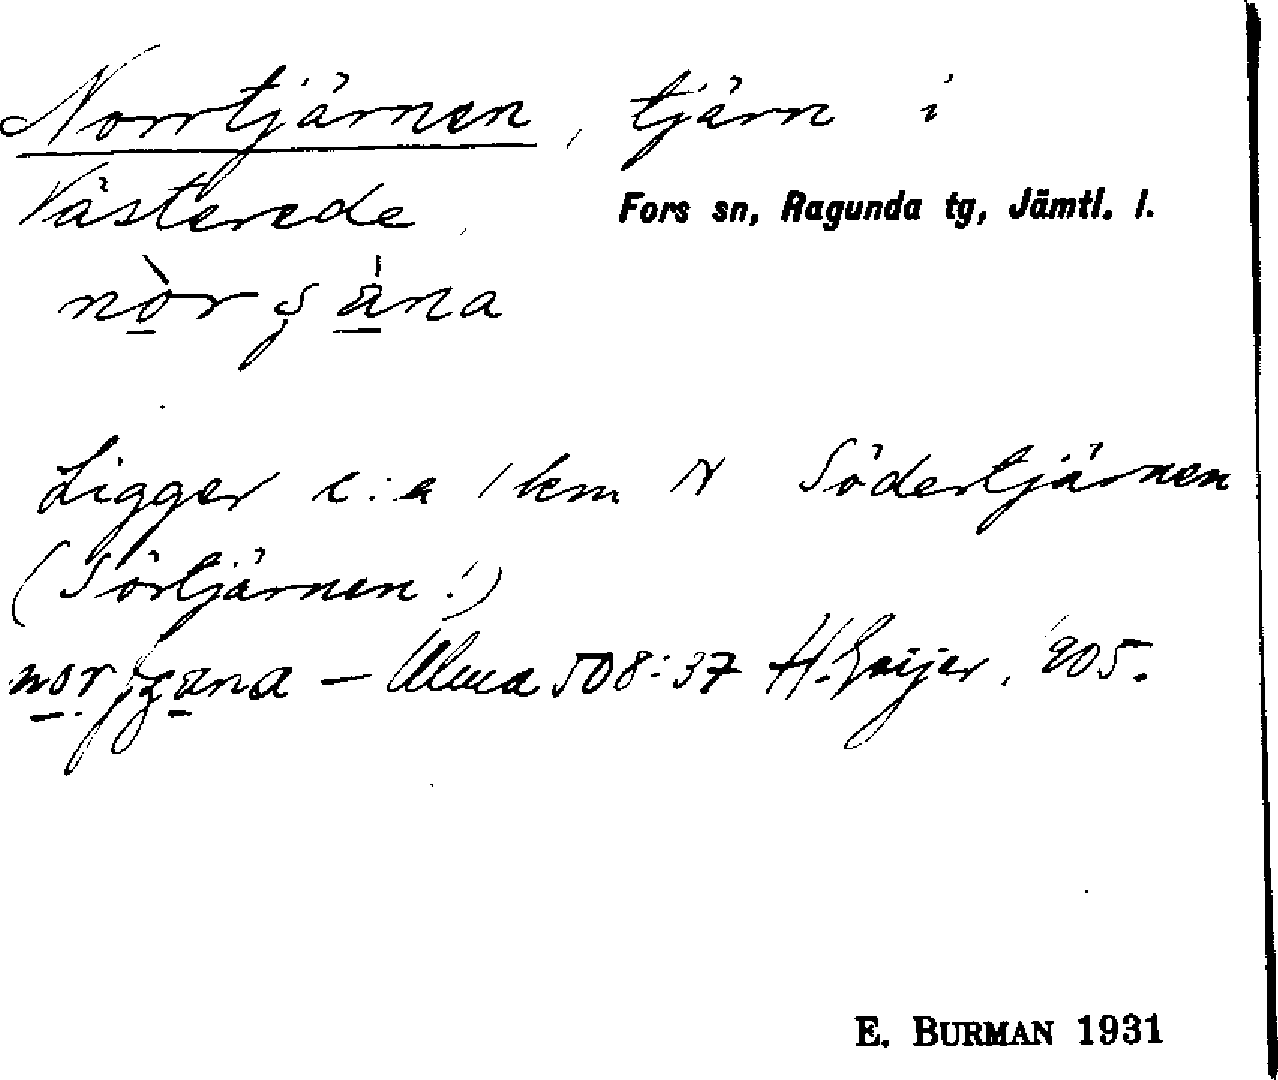 Norrtjärnen, tjärn i
Västerede, Fors sn, Ragunda tg, Jämtl. l.
Ligger c:a 1 km N Södertjärnen
(Sörtjärnen!)
— Alma 508:37 H. Geijer, '905.
E. BURMAN 1931